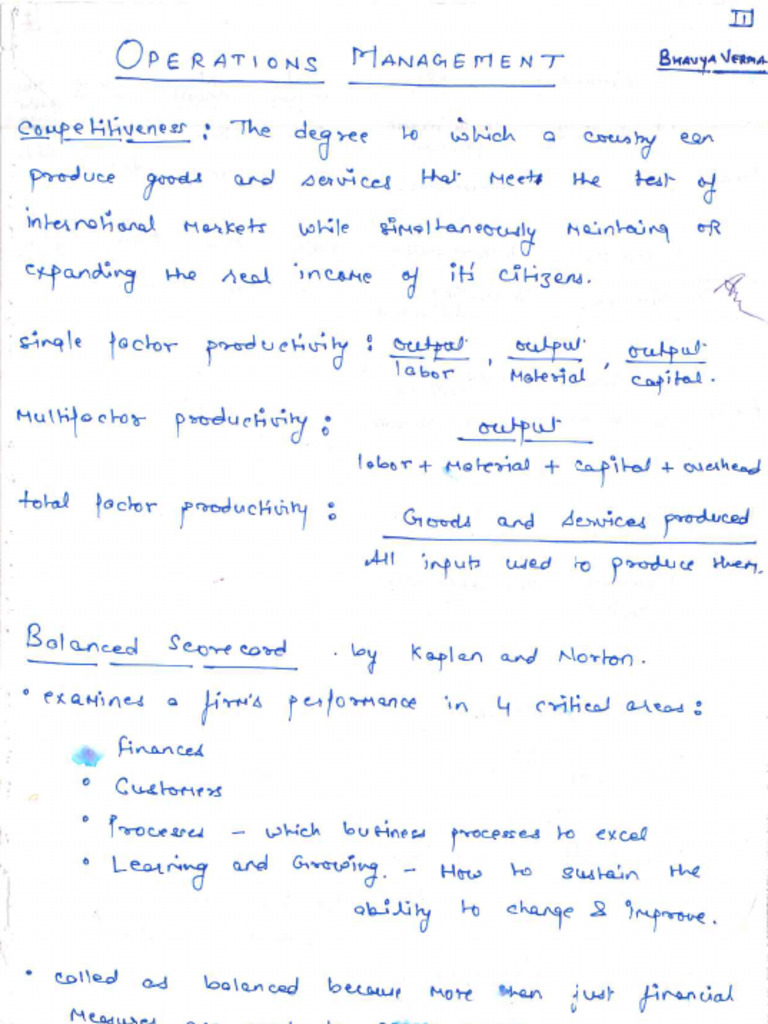 II
OPERATIONS MANAGEMENT
BHAVYA VERMA
Competitiveness : The degree to which a country can
produce goods and services that meets the test of
international markets while simultaneously maintaing or
expanding the real income of it's citizens.
single factor productivity : output/labor , output/Material , output/capital.
Multifactor productivity : output
labor + Material + capital + overhead
total factor productivity : Goods and services produced
All inputs used to produce them.
Balanced Scorecard . by Kaplan and Norton.
• examines a firm's performance in 4 critical areas :
finances
• Customers
• Processes – which business processes to excel
• Learning and Growing. – How to sustain the
ability to change & improve.
• called as balanced because more than just financial
Measures